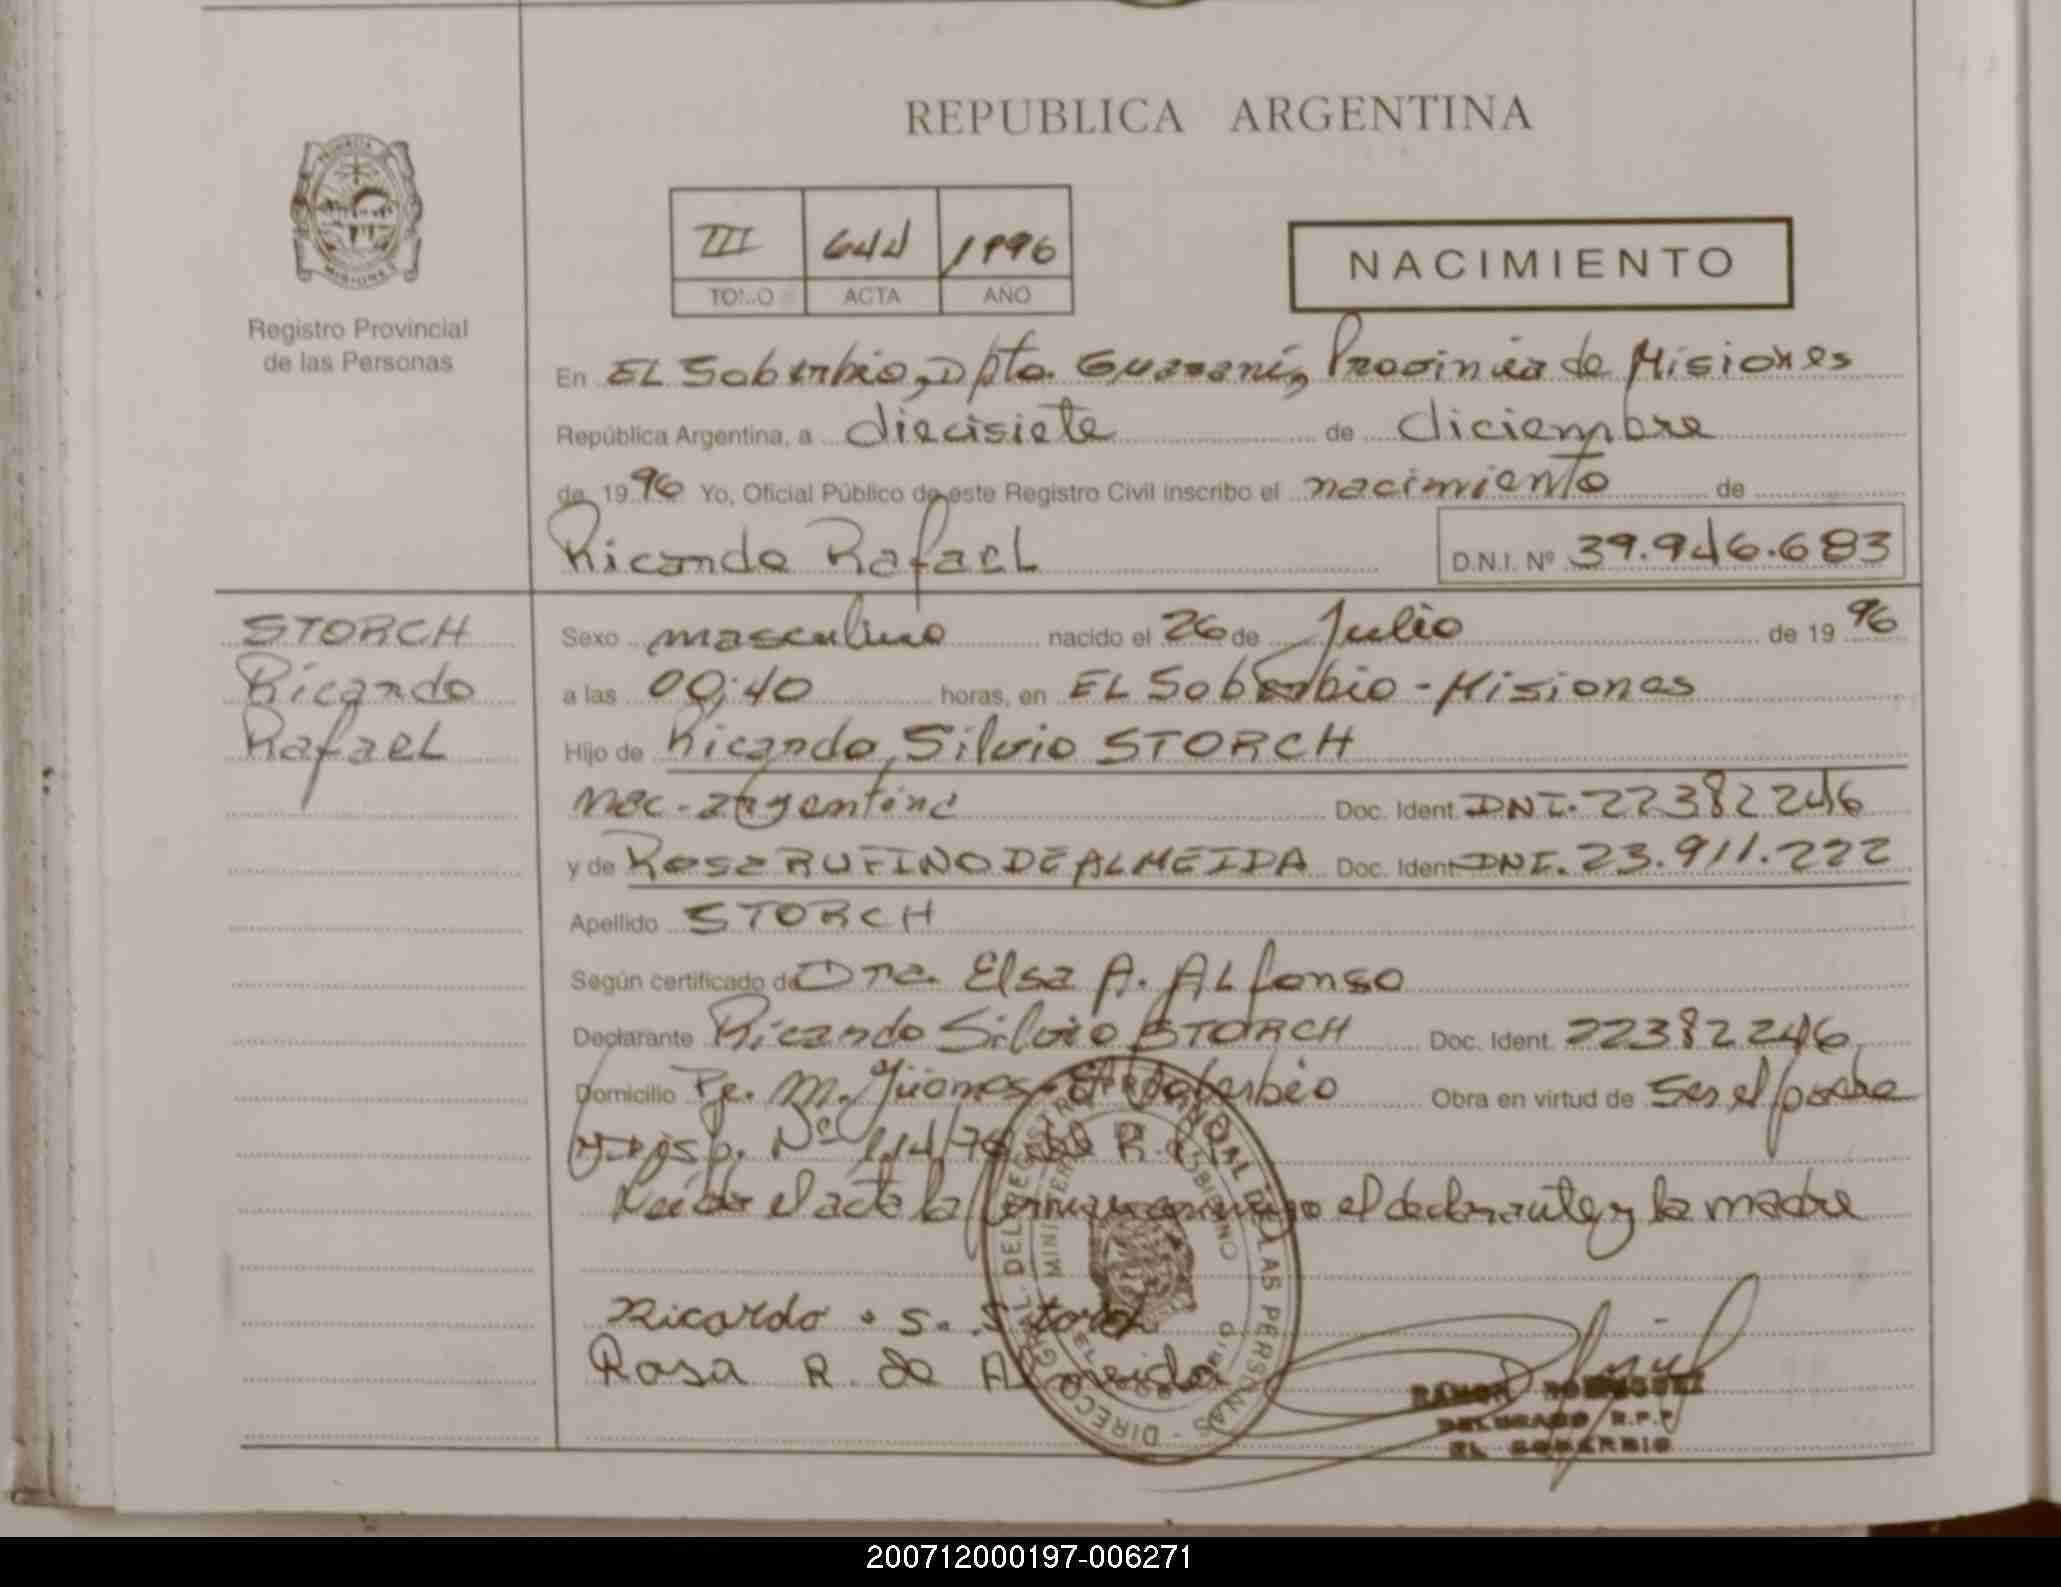 REPUBLICA ARGENTINA
PROVINCIA DE
MISIONES
Registro Provincial
de las Personas
III 644 1996
TOMO ACTA AÑO
NACIMIENTO
En EL Soberbio, Dpto. Guaraní, Provincia de Misiones
República Argentina, a diecisiete de diciembre
de 1996 Yo, Oficial Público de este Registro Civil inscribo el nacimiento de
Ricardo Rafael D.N.I. Nº 39.946.683
STORCH
Ricardo
Rafael
Sexo masculino nacido el 26 de Julio de 1996
a las 00:40 horas, en EL Soberbio - Misiones
Hijo de Ricardo Silvio STORCH
nac. argentina Doc. Ident. DNI. 22382246
y de Rosa RUFINO DE ALMEIDA Doc. Ident. DNI. 23.911.222
Apellido STORCH
Según certificado de Dra. Elsa A. ALfonso
Declarante Ricardo Silvio STORCH Doc. Ident. 22382246
Domicilio Pje. M. Güemes - El Soberbio Obra en virtud de ser el padre
y Disp. Nº 114/78 del R.P.P.
Leída el acta la firman conmigo el declarante y la madre
Ricardo . S. Storch
Rosa R. de Almeida
DIRECC. GRAL. DEL REGISTRO PROVINCIAL DE LAS PERSONAS
MINISTERIO GOBIERNO
EL SOBERBIO
RAMON RODRIGUEZ
DELEGADO R.P.P.
EL SOBERBIO
200712000197-006271